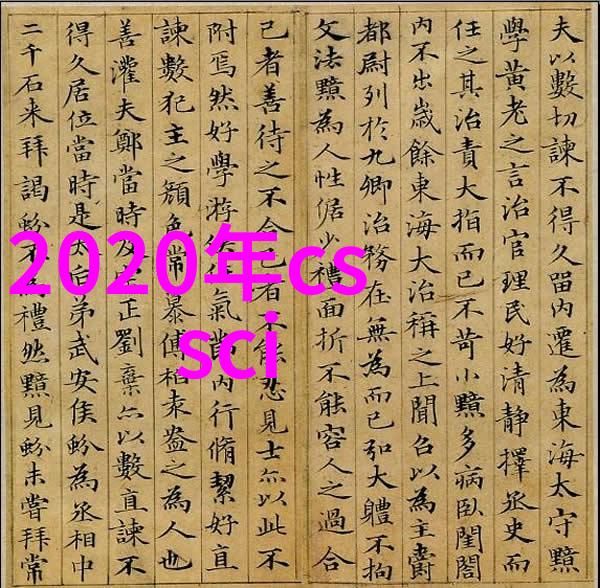 夫以數切諫不得久留內遷為東海太守黯
學黃老之言治官理民好清静擇丞史而
任之其治責大指而已不苛小黯多病臥閨閤
內不出歲餘東海大治稱之上聞召以為主爵
都尉列於九卿治務在無為而已弘大體不拘
文法黯為人性倨少禮面折不能容人之過合
己者善待之不合己者不能忍見士亦以此不
附焉然好學游俠任氣節內行脩絜好直
諫數犯主之顏色常慕傅柏袁盎之為人也
善灌夫鄭當時及宗正劉棄亦以數直諫不
得久居位當時是太后弟武安侯蚡為丞相中
二千石来拜謁蚡不為禮然黯見蚡未嘗拜常
2020年cs
sci